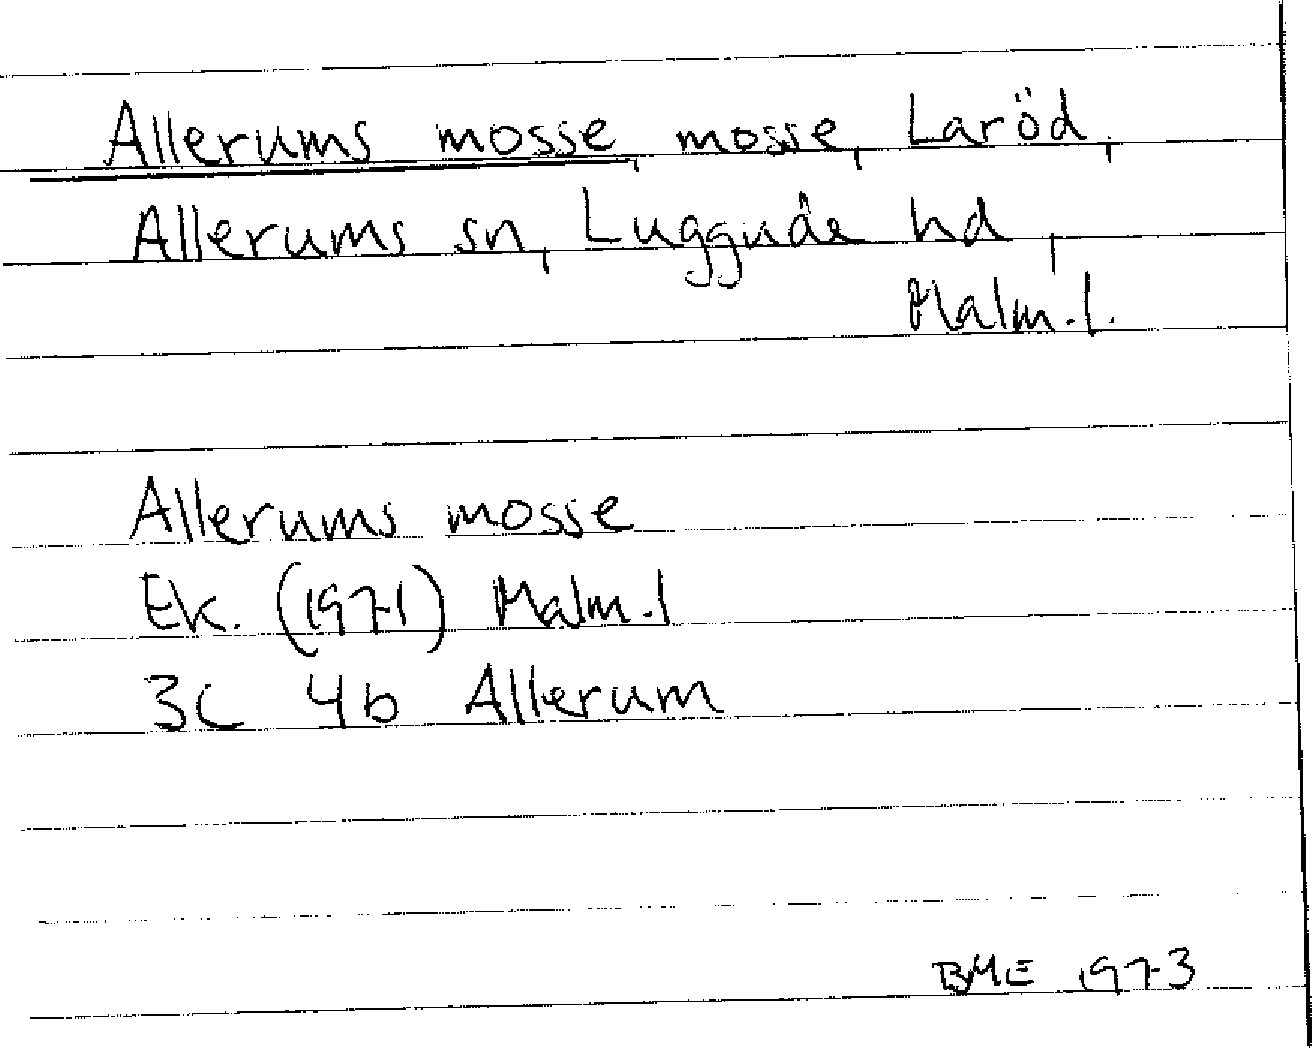 Allerums mosse, mosse, Laröd,
Allerums sn, Luggude hd,
Malm.l.
Allerums mosse
Ek. (1971) Malm.l
3C 4b Allerum
BME 1973